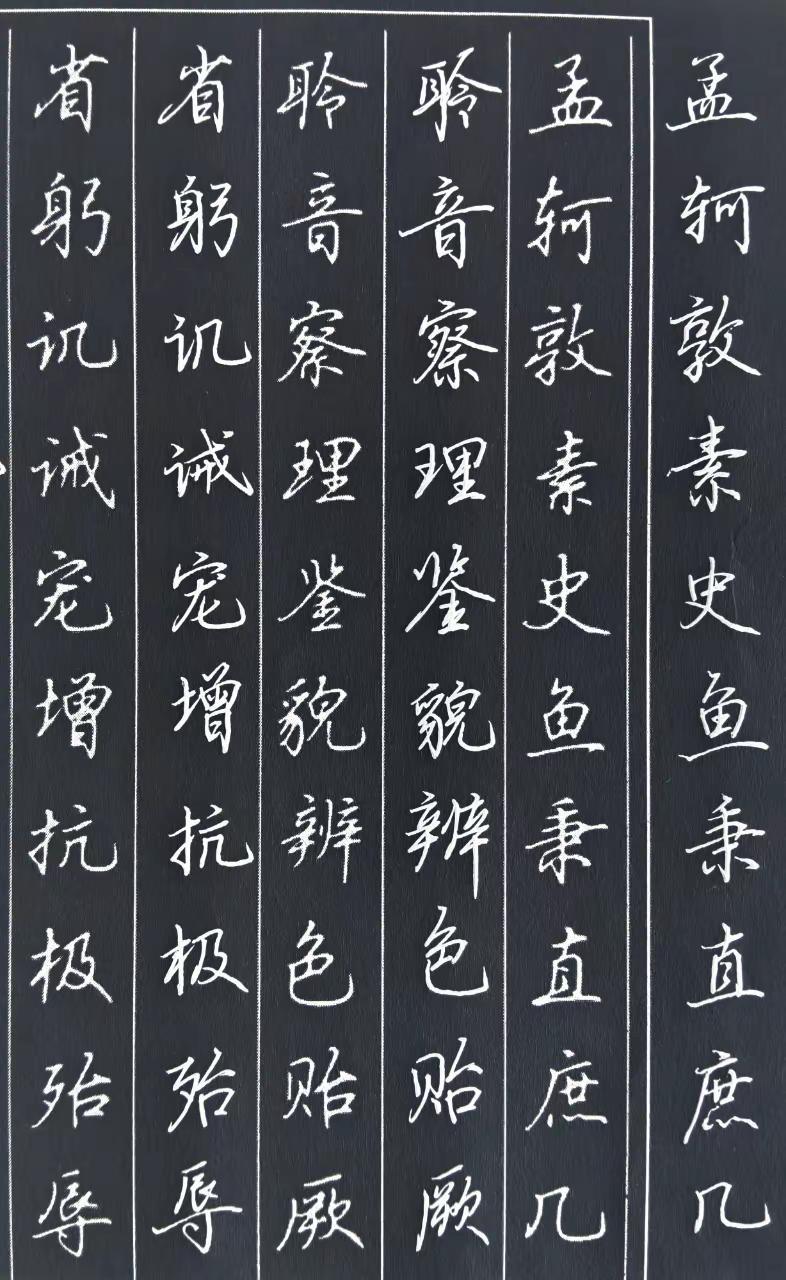 孟轲敦素史鱼秉直庶几
孟轲敦素史鱼秉直庶几
聆音察理鉴貌辨色贻厥
聆音察理鉴貌辨色贻厥
省躬讥诫宠增抗极殆辱
省躬讥诫宠增抗极殆辱